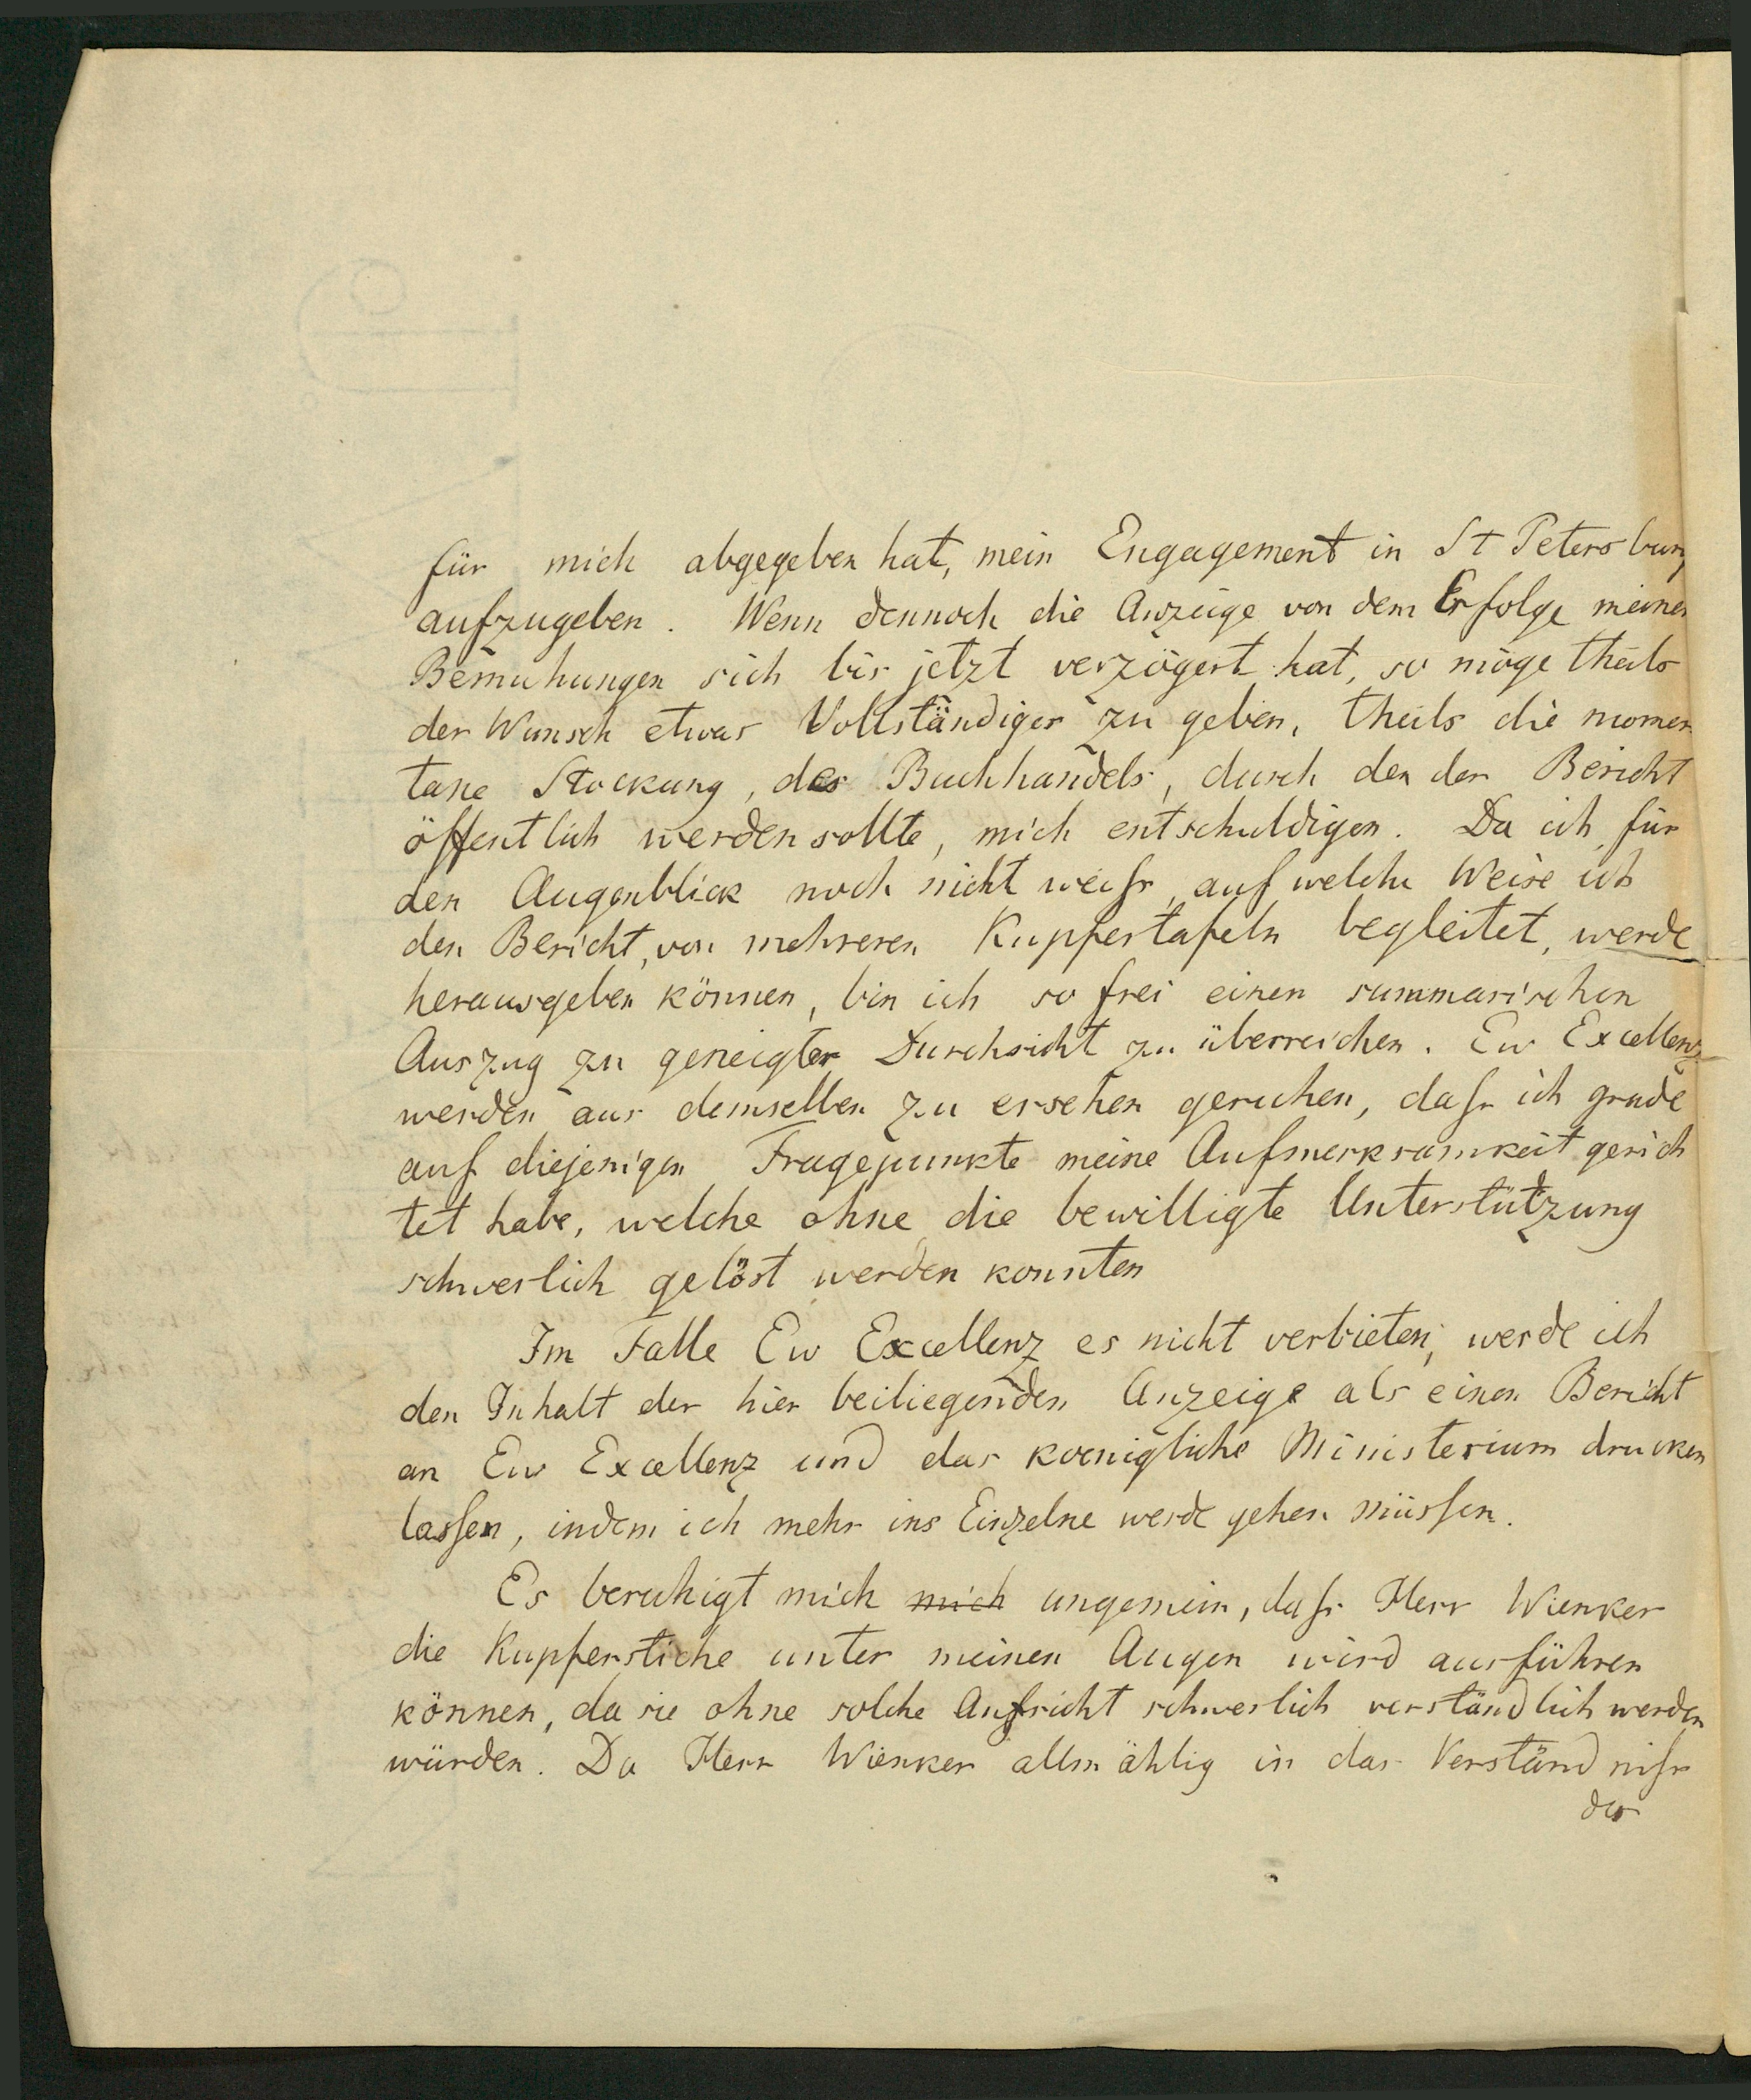 für mich abgegeben hat, mein Engagement in St Petersburg
aufzugeben. Wenn dennoch die Anzeige von dem Erfolge meiner
Bemuhungen sich bis jetzt verzögert hat, so möge theils
der Wunsch etwas Vollständiges zu geben, theils die momen
tane Stockung, des Buchhandels, durch den der Bericht
öffentlich werden sollte, mich entschuldigen. Da ich für
den Augenblick noch nicht weiſs, auf welche Weise ich
den Bericht, von mehreren Kupfertafeln begleitet, werde
herausgeben können, bin ich so frei einen summarischen
Auszug zu geneigter Durchsicht zu überreichen. Ew Excellenz
werden aus demselben zu ersehen geruhen, daſs ich grade
auf diejenigen Fragepunkte meine Aufmerksamkeit gerich
tet habe, welche ohne die bewilligte Unterstützung
schwerlich gelöst werden konnten
Im Falle Ew Excellenz es nicht verbieten, werde ich
den Inhalt der hier beiliegenden Anzeige als einen Bericht
an Ew Excellenz und das koenigliche Ministerium drucken
laſsen, indem ich mehr ins Einzelne werde gehen müſsen.
Es beruhigt mich mich ungemein, daſs Herr Wienker
die Kupferstiche unter meinen Augen wird ausführen
können, da sie ohne solche Aufsicht schwerlich verständlich werden
würden. Da Herr Wienker allmählig in das Verständniſs
der